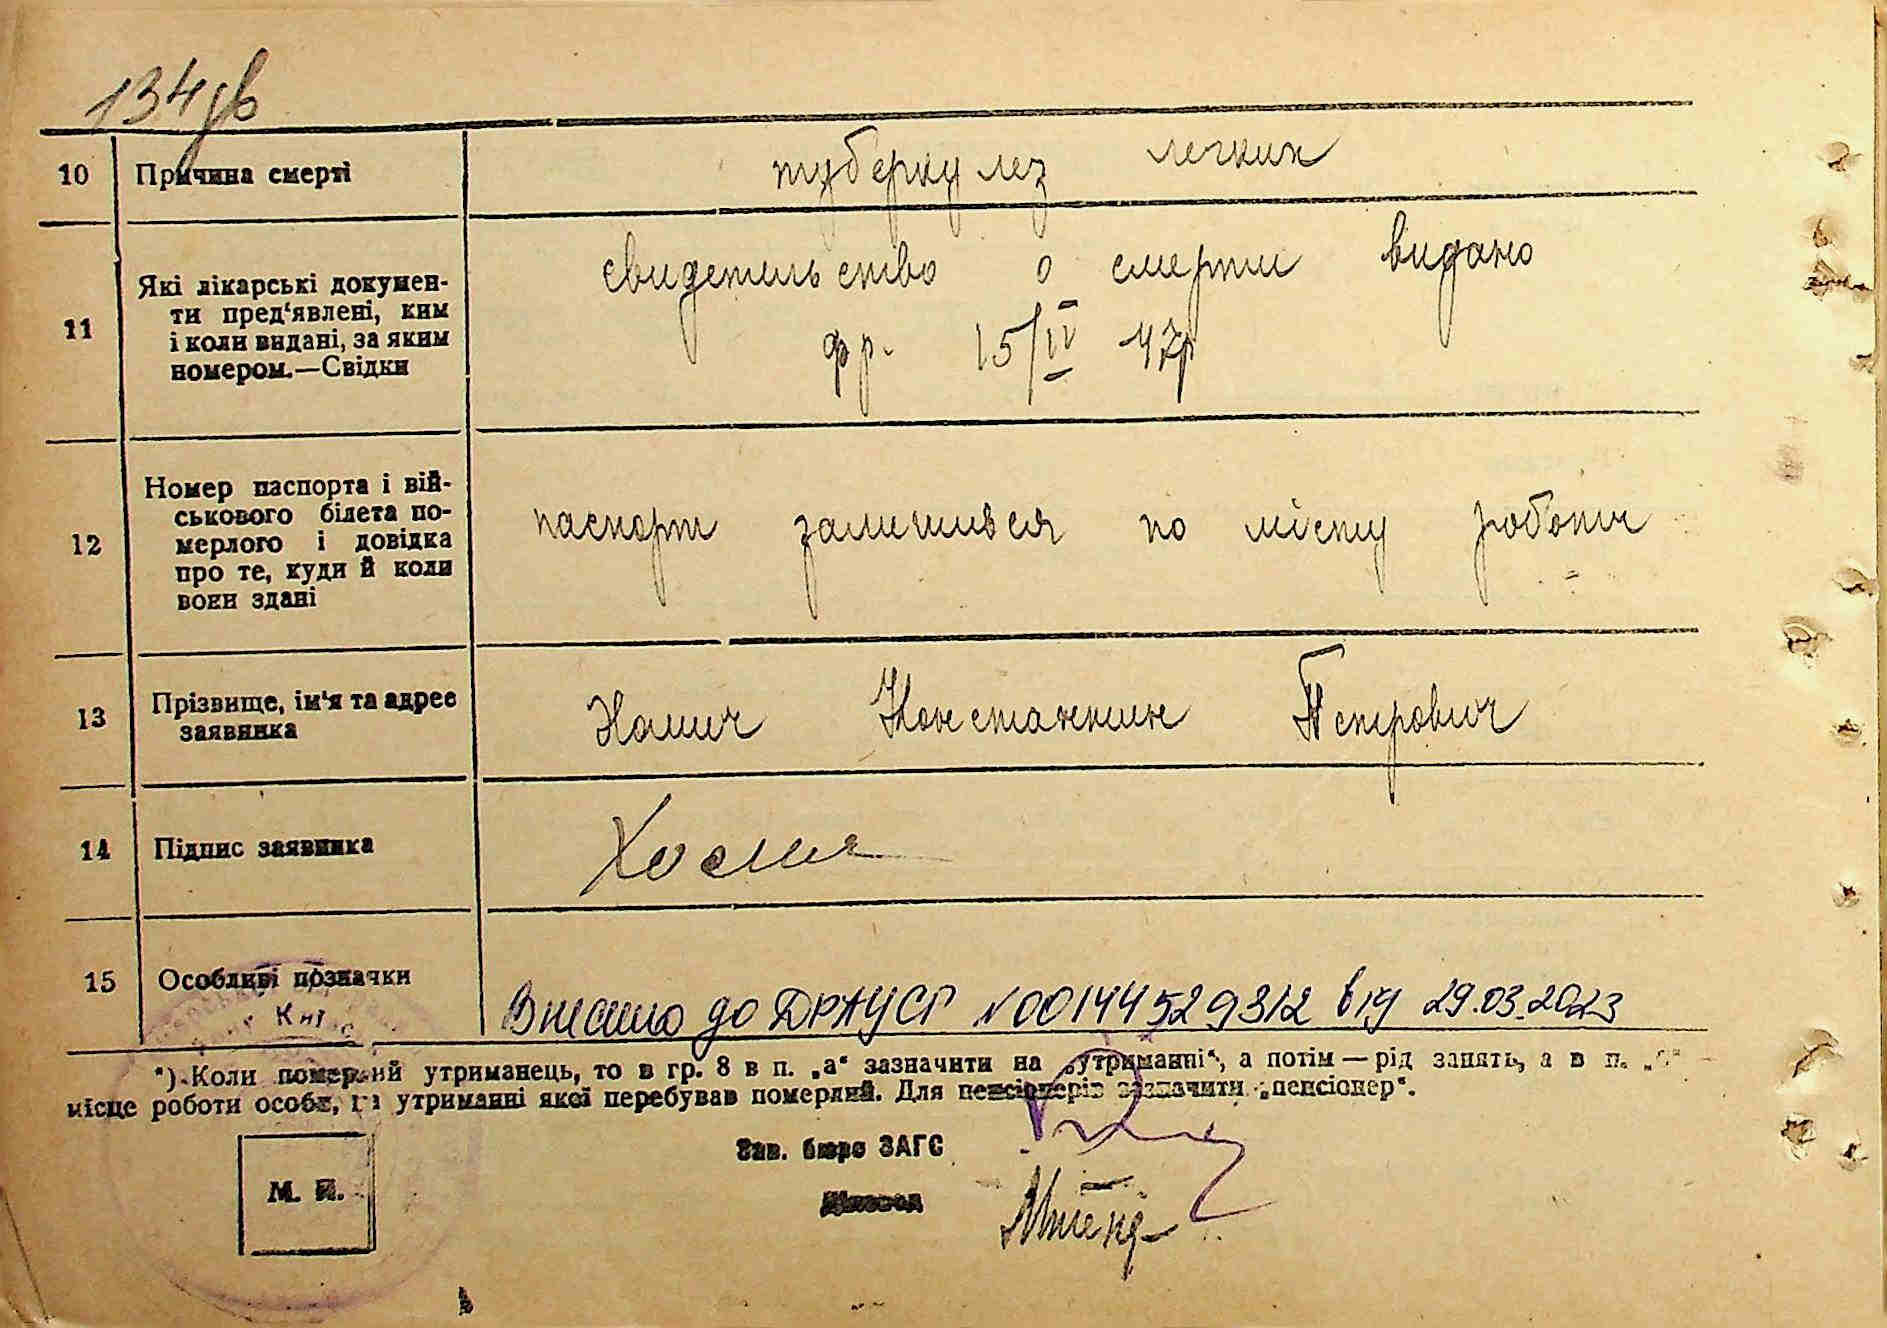 134зв
10 Причина смерті туберкулез легких
11 Які лікарські докумен-
ти пред'явлені, ким
і коли видані, за яким
номером.—Свідки
свидетельство о смерти видано
15/IV 47р
12 Номер паспорта і вій-
ськового білета по-
мерлого і довідка
про те, куди й коли
вони здані
паспорт залишився по місту роботи
13 Прізвище, ім'я та адрес
заявника
Константин Петрович
14 Підпис заявника
15 Особливі позначки
Внесено до ДРАЦСГ №00144529312 від 29.03.2023
*) Коли померлий утриманець, то в гр. 8 в п. „а“ зазначити на „утриманні“, а потім — рід занять, а в п.
місце роботи особи, на утриманні якої перебував померлий. Для пенсіонерів зазначити „пенсіонер“.
Зав. бюро ЗАГС
Діловод
М. П.